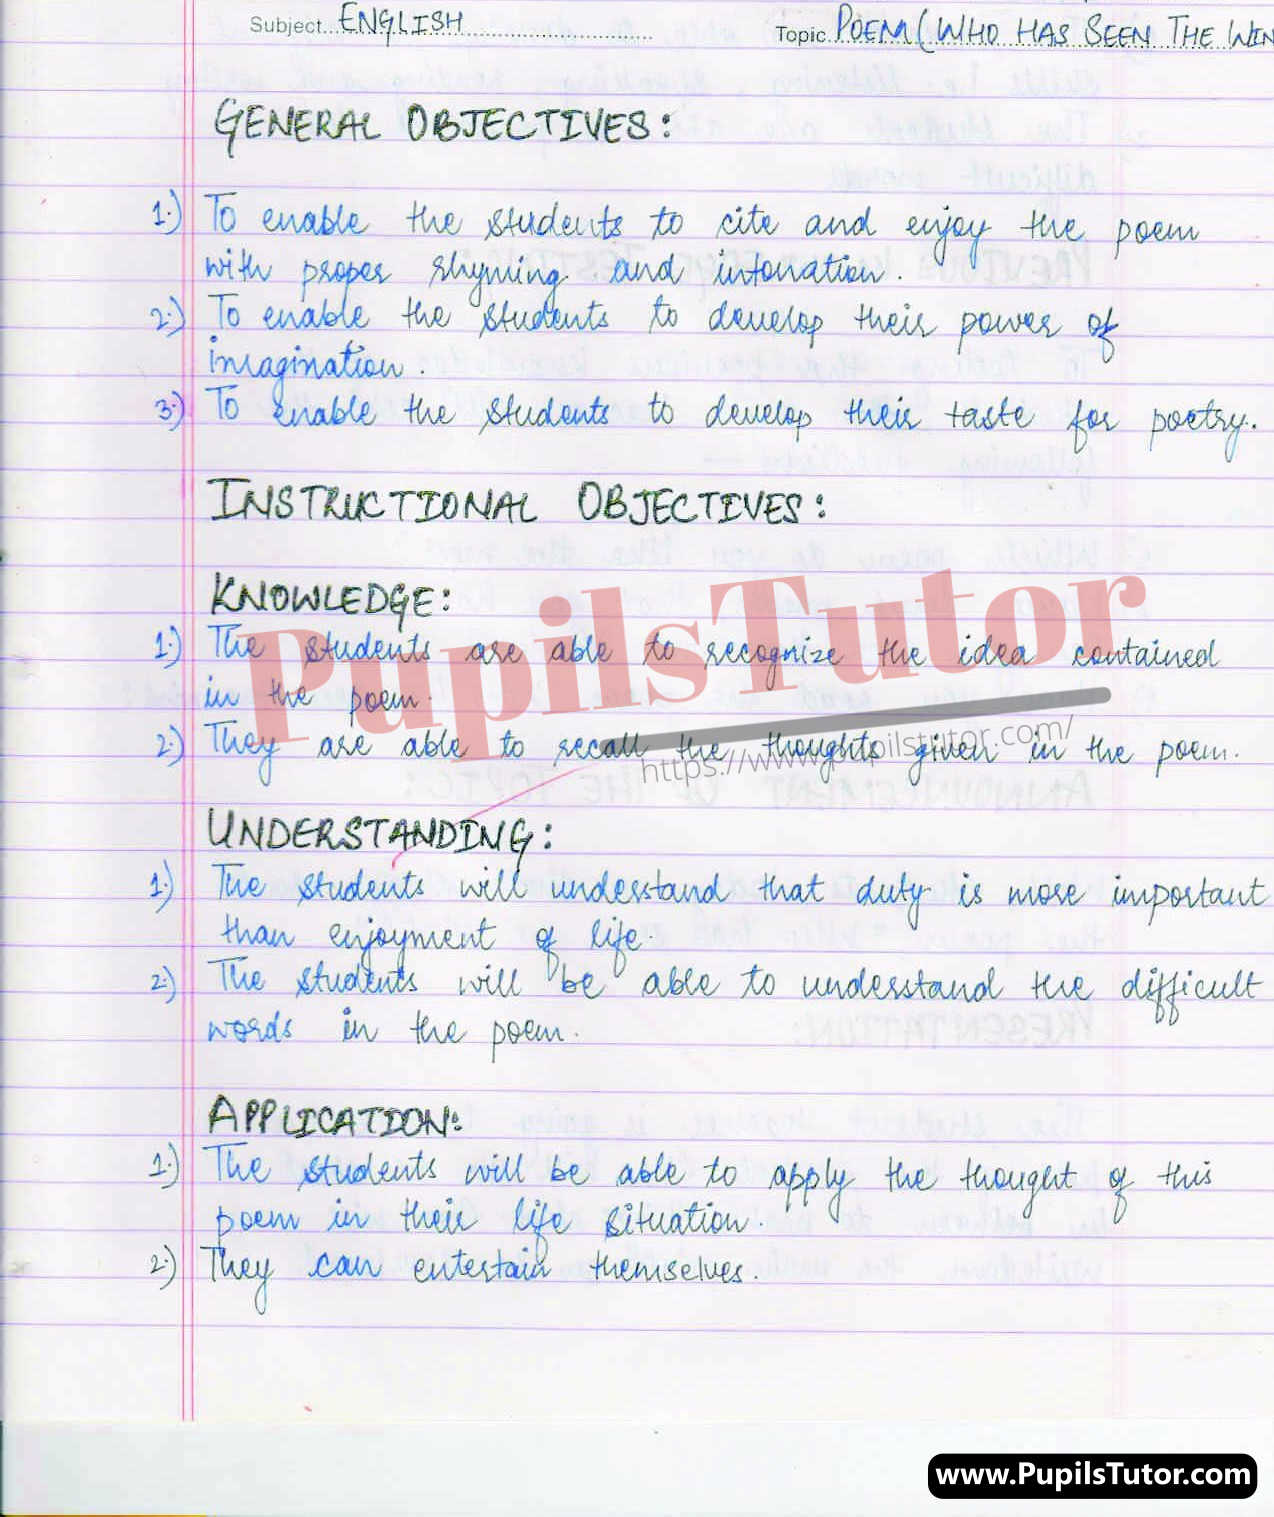 Subject ENGLISH Topic POEM (WHO HAS SEEN THE WIN
GENERAL OBJECTIVES:
1.) To enable the students to cite and enjoy the poem
with proper rhyming and intonation.
2.) To enable the students to develop their power of
imagination.
3.) To enable the students to develop their taste for poetry.
INSTRUCTIONAL OBJECTIVES:
KNOWLEDGE:
1.) The students are able to recognize the idea contained
in the poem.
2.) They are able to recall the thoughts given in the poem.
PupilsTutor
https://www.pupilstutor.com/
UNDERSTANDING:
1.) The students will understand that duty is more important
than enjoyment of life.
2.) The students will be able to understand the difficult
words in the poem.
APPLICATION:
1.) The students will be able to apply the thought of this
poem in their life situation.
2.) They can entertain themselves.
www.PupilsTutor.com